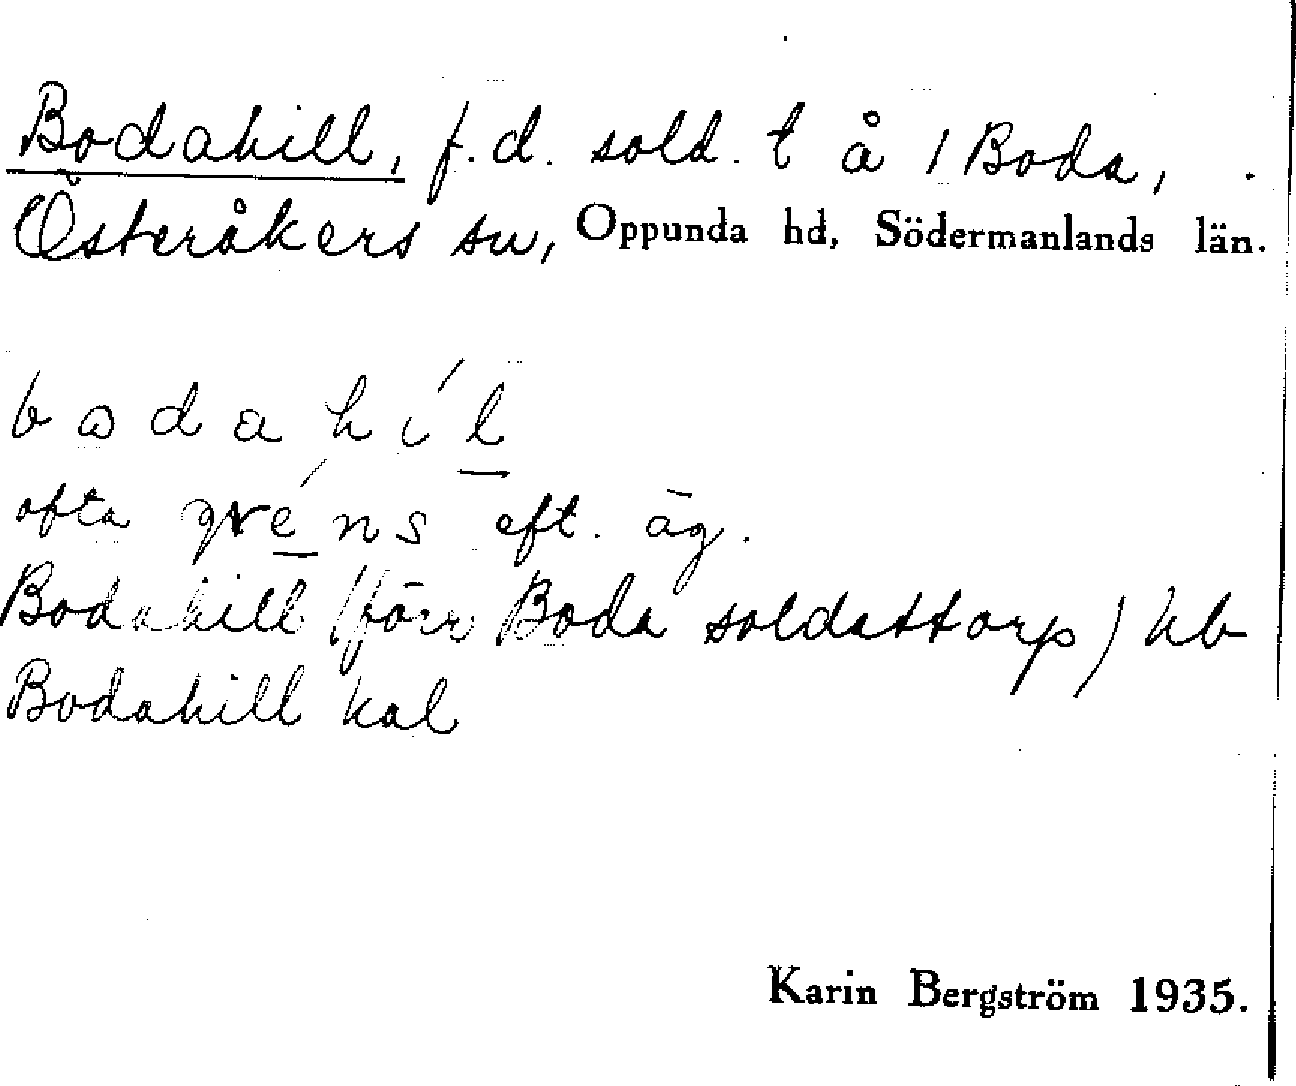 Bodahill, f.d. sold. t å 1 Boda,
Österåkers sn, Oppunda hd, Södermanlands län.
bodahíl
ofta eft. äg.
Bodahill (förr Boda soldattorp) hb
Bodahill kal
Karin Bergström 1935.